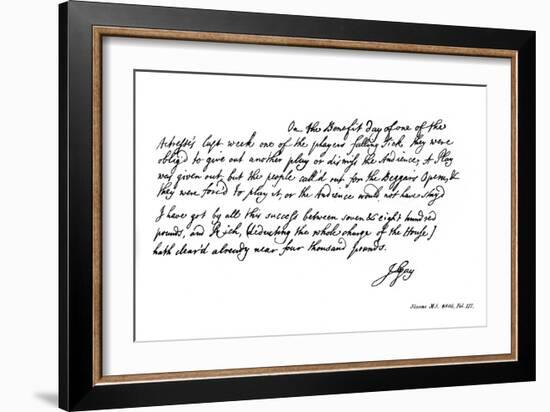 On the Benefit Day of one of the
Actresse's last week one of the players falling sick they were
oblig'd to give out another play or dismiss the Audience, A Play
was given out, but the people call'd out for the Beggars Opera, &
they were forc'd to play it, or the Audience would not have stay'd
I have got by all this success between seven & eight hundred
pounds, and Rich, (deducting the whole charge of the House,)
hath clear'd already near four thousand pounds.
J Gay
Sloane M.S. Fol. III.